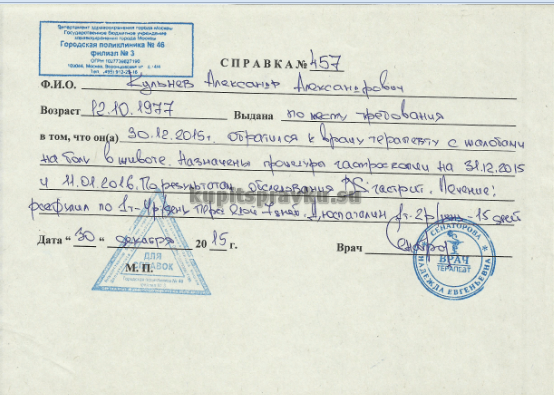 Департамент здравоохранения города Москвы
Государственное бюджетное учреждение
здравоохранения города Москвы
Городская поликлиника № 46
филиал № 3
СПРАВКА № 457
Ф.И.О. Кульнев Александр Александрович
Возраст 12.10.1977 Выдана по месту требования
в том, что он(а) 30.12.2015г. обратился к врачу терапевту с жалобами
на боли в животе. Назначены гастроскопии на 31.12.2015
и 11.01.2016. По результатам обследования DS: гастрит. Лечение:
по 1т - 4р/день 7дней. Дюспаталин 1т-2р/день - 15 дней
kupitspravku.sa
Дата “ 30 ” декабря 20 15 г. Врач
М. П.
ДЛЯ
СПРАВОК
СЕНАТОРОВА
НАДЕЖДА ЕВГЕНЬЕВНА
ВРАЧ
ТЕРАПЕВТ